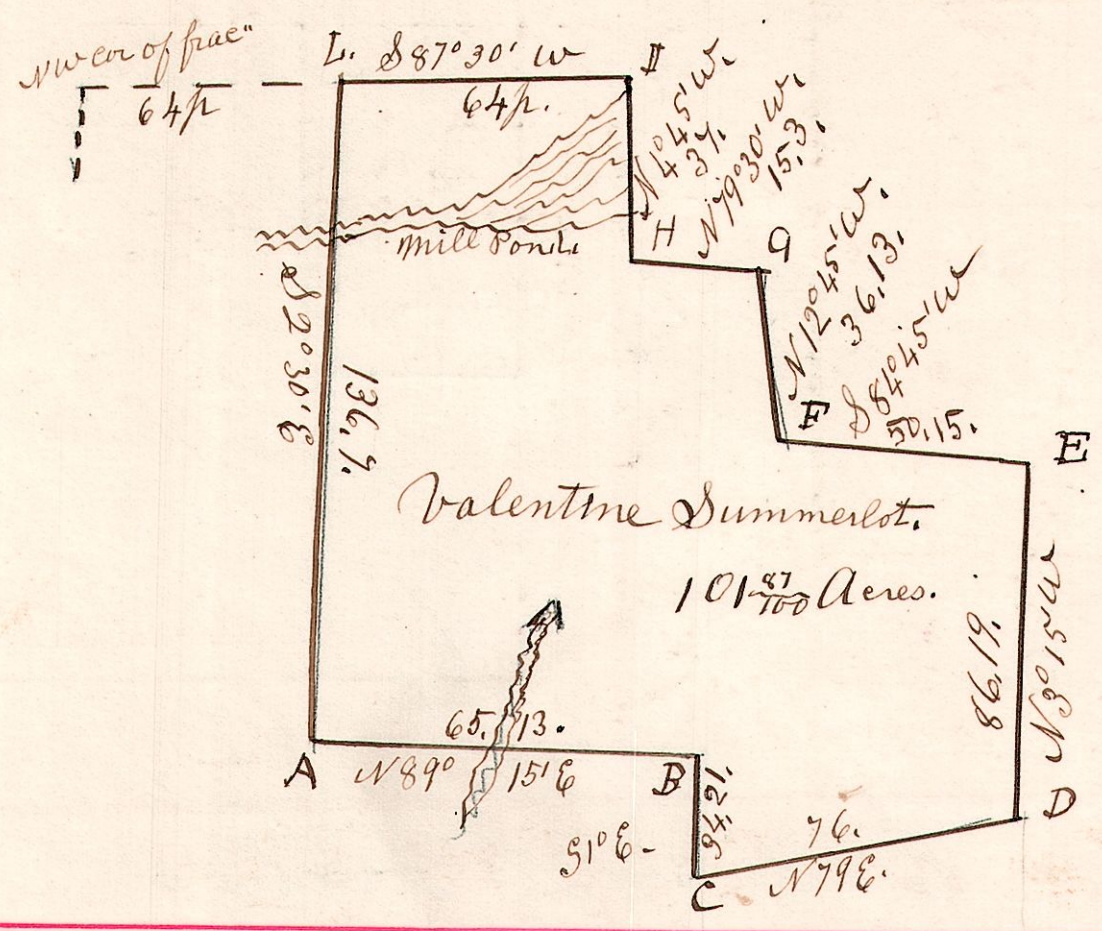 NW cor of frac"
64p
L. S87°30' W I
64p.
N4°45' W.
37.
N79°30' W.
15,3.
H
G
Mill Pond.
N12°45' W.
36,13.
S84°45' W
50,15.
F
E
S2°30' E
136,9.
Valentine Summerlot.
101 87/100 Acres.
86,19.
N3°15' W
65,13.
A N89° 15' E B
D
S1°E-
34,21.
76.
N79E.
C